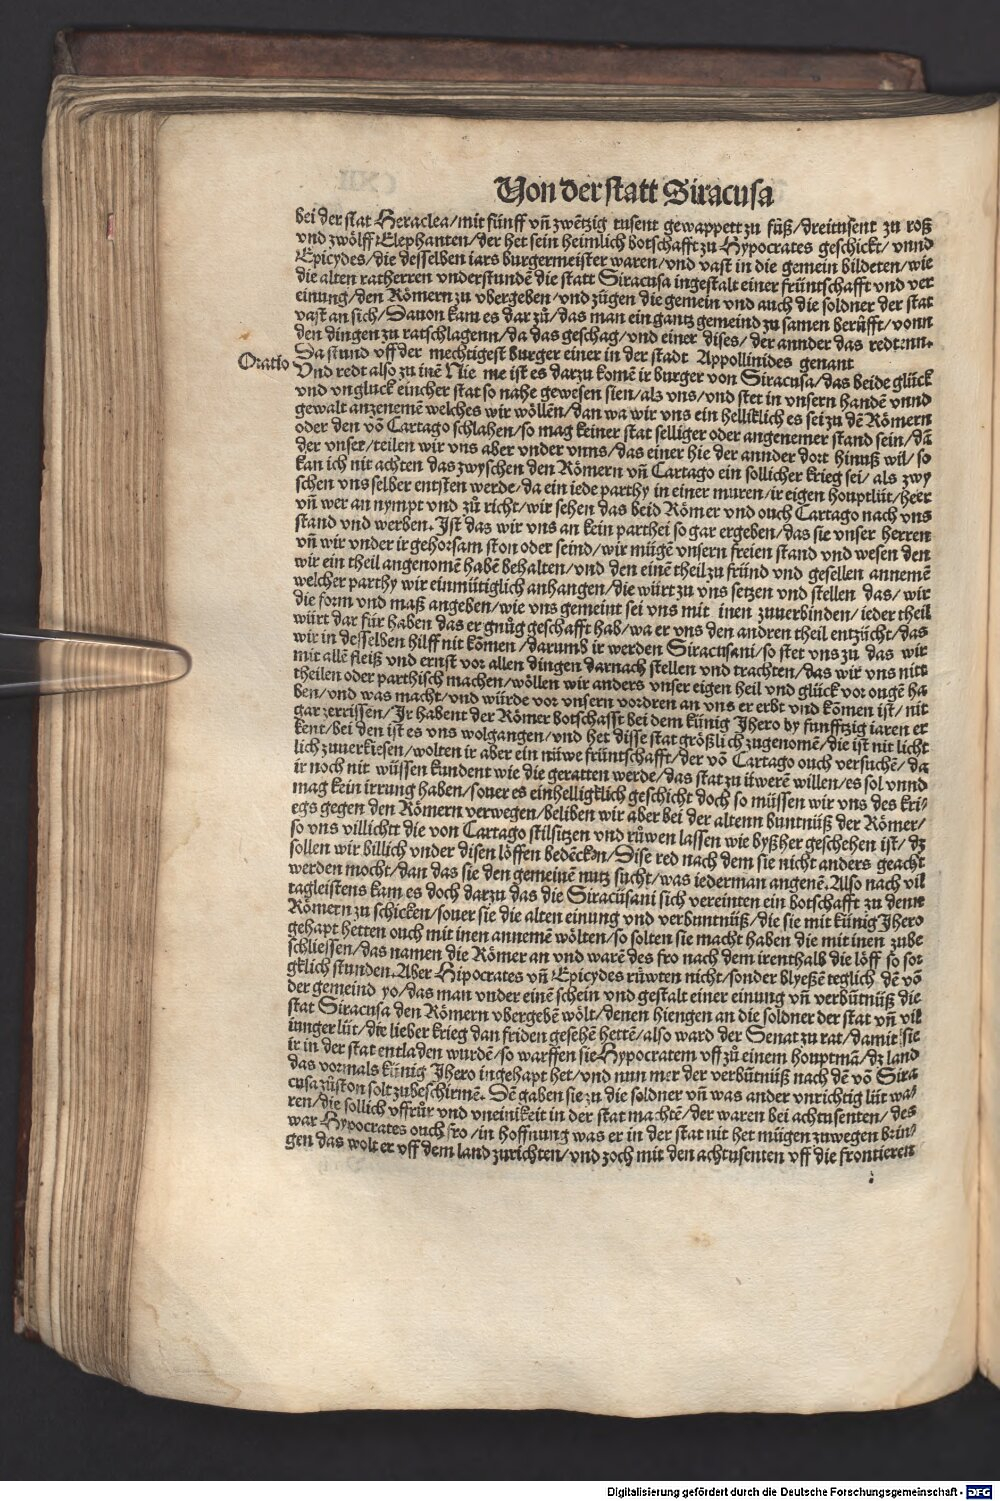 Von der statt Siracusa
bei der stat Heraclea/mit fünff vñ zwētzig tusent gewappett zu fůß/dreitusent zu roß
vnd zwölff Elephanten/der het sein heimlich botschafft zu Hypocrates geschickt/vnnd
Epicydes/die desselben iars burgermeister waren/vnd vast in die gemein bildeten/wie
die alten ratherren vnderstundē die statt Siracusa ingestalt einer früntschafft vnd ver
einung/den Römern zu vbergeben/vnd zügen die gemein vnd auch die soldner der stat
vast an sich/Dauon kam es dar zů/das man ein gantz gemeind zu samen berůfft/vonn
den dingen zu ratschlagenn/da das geschag/vnd einer dises/der annder das redtenn.
Da stund vff der mechtigest burger einer in der stadt Appollinides genant
Oratio Vnd redt also zu inē Nie me ist es darzu komē ir burger von Siracusa/das beide glück
vnd vngluck eincher stat so nahe gewesen sien/als vns/vnd stet in vnsern handē vnnd
gewalt anzenemē welches wir wöllen/dan wa wir vns ein helliklich es sei zu dē Römern
oder den vō Cartago schlahen/so mag keiner stat selliger oder angenemer stand sein/dā
der vnser/teilen wir vns aber vnder vnns/das einer hie der annder dort hinuß wil/so
kan ich nit achten das zwyschen den Römern vñ Cartago ein sollicher krieg sei/als zwy
schen vns selber entsten werde/da ein iede parthy in einer muren/ir eigen houptlüt/heer
vñ wer an nympt vnd zů richt/wir sehen das beid Römer vnd ouch Cartago nach vns
stand vnd werben. Ist das wir vns an kein parthei so gar ergeben/das sie vnser herren
vñ wir vnder ir gehorsam ston oder seind/wir mügē vnsern freien stand vnd wesen den
wir ein theil angenomē habē behalten/vnd den einē theil zu fründ vnd gesellen annemē
welcher parthy wir einmütiglich anhangen/die würt zu vns setzen vnd stellen das/wir
die form vnd maß angeben/wie vns gemeint sei vns mit inen zuuerbinden/ieder theil
würt dar für haben das er gnůg geschafft hab/wa er vns den andren theil entzücht/das
wir in desselben hilff nit kōmen/darumb ir werden Siracusani/so stet vns zů das wir
mit allē fleiß vnd ernst vor allen dingen darnach stellen vnd trachten/das wir vns nitt
theilen oder parthisch machen/wöllen wir anders vnser eigen heil vnd glück vor ougē ha
ben/vnd was macht/vnd würde vor vnsern vordren an vns er erbt vnd kōmen ist/nit
gar zerrissen/Ir habent der Römer botschafft bei dem künig Jhero by funfftzig iaren er
kent/bei den ist es vns wolgangen/vnd het disse stat größlich zugenomē/die ist nit licht
lich zuuerkiesen/wolten ir aber ein nüwe früntschafft/der vō Cartago ouch versuchē/da
ir noch nit wüssen kundent wie die geratten werde/das stat zu üwerē willen/es sol vnnd
mag kein irrung haben/souer es einhelligklich geschicht doch so müssen wir vns des kri/
egs gegen den Römern verwegen/beliben wir aber bei der altenn buntnüß der Römer/
so vns villichtt die von Cartago stilsitzen vnd růwen lassen wie byßher geschehen ist/dz
sollen wir billich vnder disen löffen bedēcken/Dise red nach dem sie nicht anders geacht
werden mocht/dan das sie den gemeinē nutz sucht/was iederman angenē. Also nach vil
tagleistens kam es doch darzu das die Siracusani sich vereinten ein botschafft zu denn
Römern zu schicken/souer sie die alten einung vnd verbuntnüß/die sie mit künig Jhero
gehapt hetten ouch mit inen annemē wölten/so solten sie macht haben die mit inen zube
schliessen/das namen die Römer an vnd warē des fro nach dem irenthalb die löff so sor
gklich stunden. Aber Hipocrates vñ Epicydes růwten nicht/sonder blyeßē teglich dē vō
der gemeind yo/das man vnder einē schein vnd gestalt einer einung vñ verbūtnüß die
stat Siracusa den Römern vbergebē wölt/denen hiengen an die soldner der stat vñ vil
iunger lüt/die lieber krieg dan friden gesehē hettē/also ward der Senat zu rat/damit sie
ir in der stat entladen wurdē/so warffen sie Hypocratem vff zů einem houptmā/dz land
das vormals künig Jhero ingehapt het/vnd nun mer der verbūtnüß nach dē vō Sira
cusa zůston solt zubeschirmē. Dē gaben sie zu die soldner vñ was ander vnrichtig lüt wa/
ren/die sollich vffrür vnd vneinikeit in der stat machtē/der waren bei achtusenten/des
war Hypocrates ouch fro/in hoffnung was er in der stat nit het mügen zuwegen brin/
gen das wolt er vff dem land zurichten/vnd zoch mit den achtusenten vff die frontieren
Digitalisierung gefördert durch die Deutsche Forschungsgemeinschaft - DFG